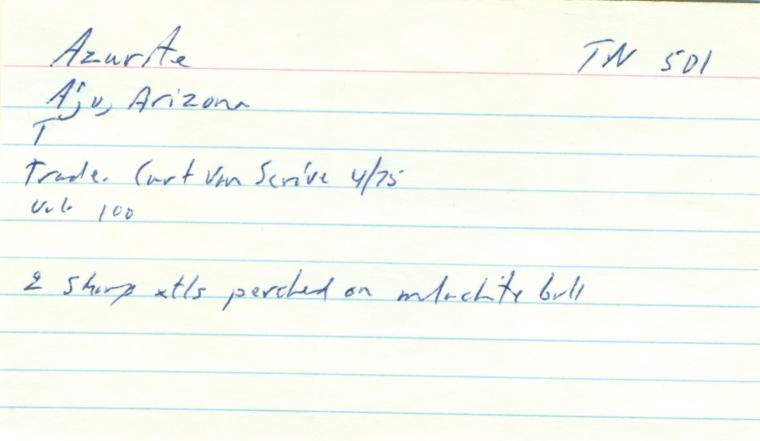 Azurite TN 501
Ajo, Arizona
T
Trade. Curt Van Scrive 4/75
Val. 100
2 sharp xtls perched on malachite ball